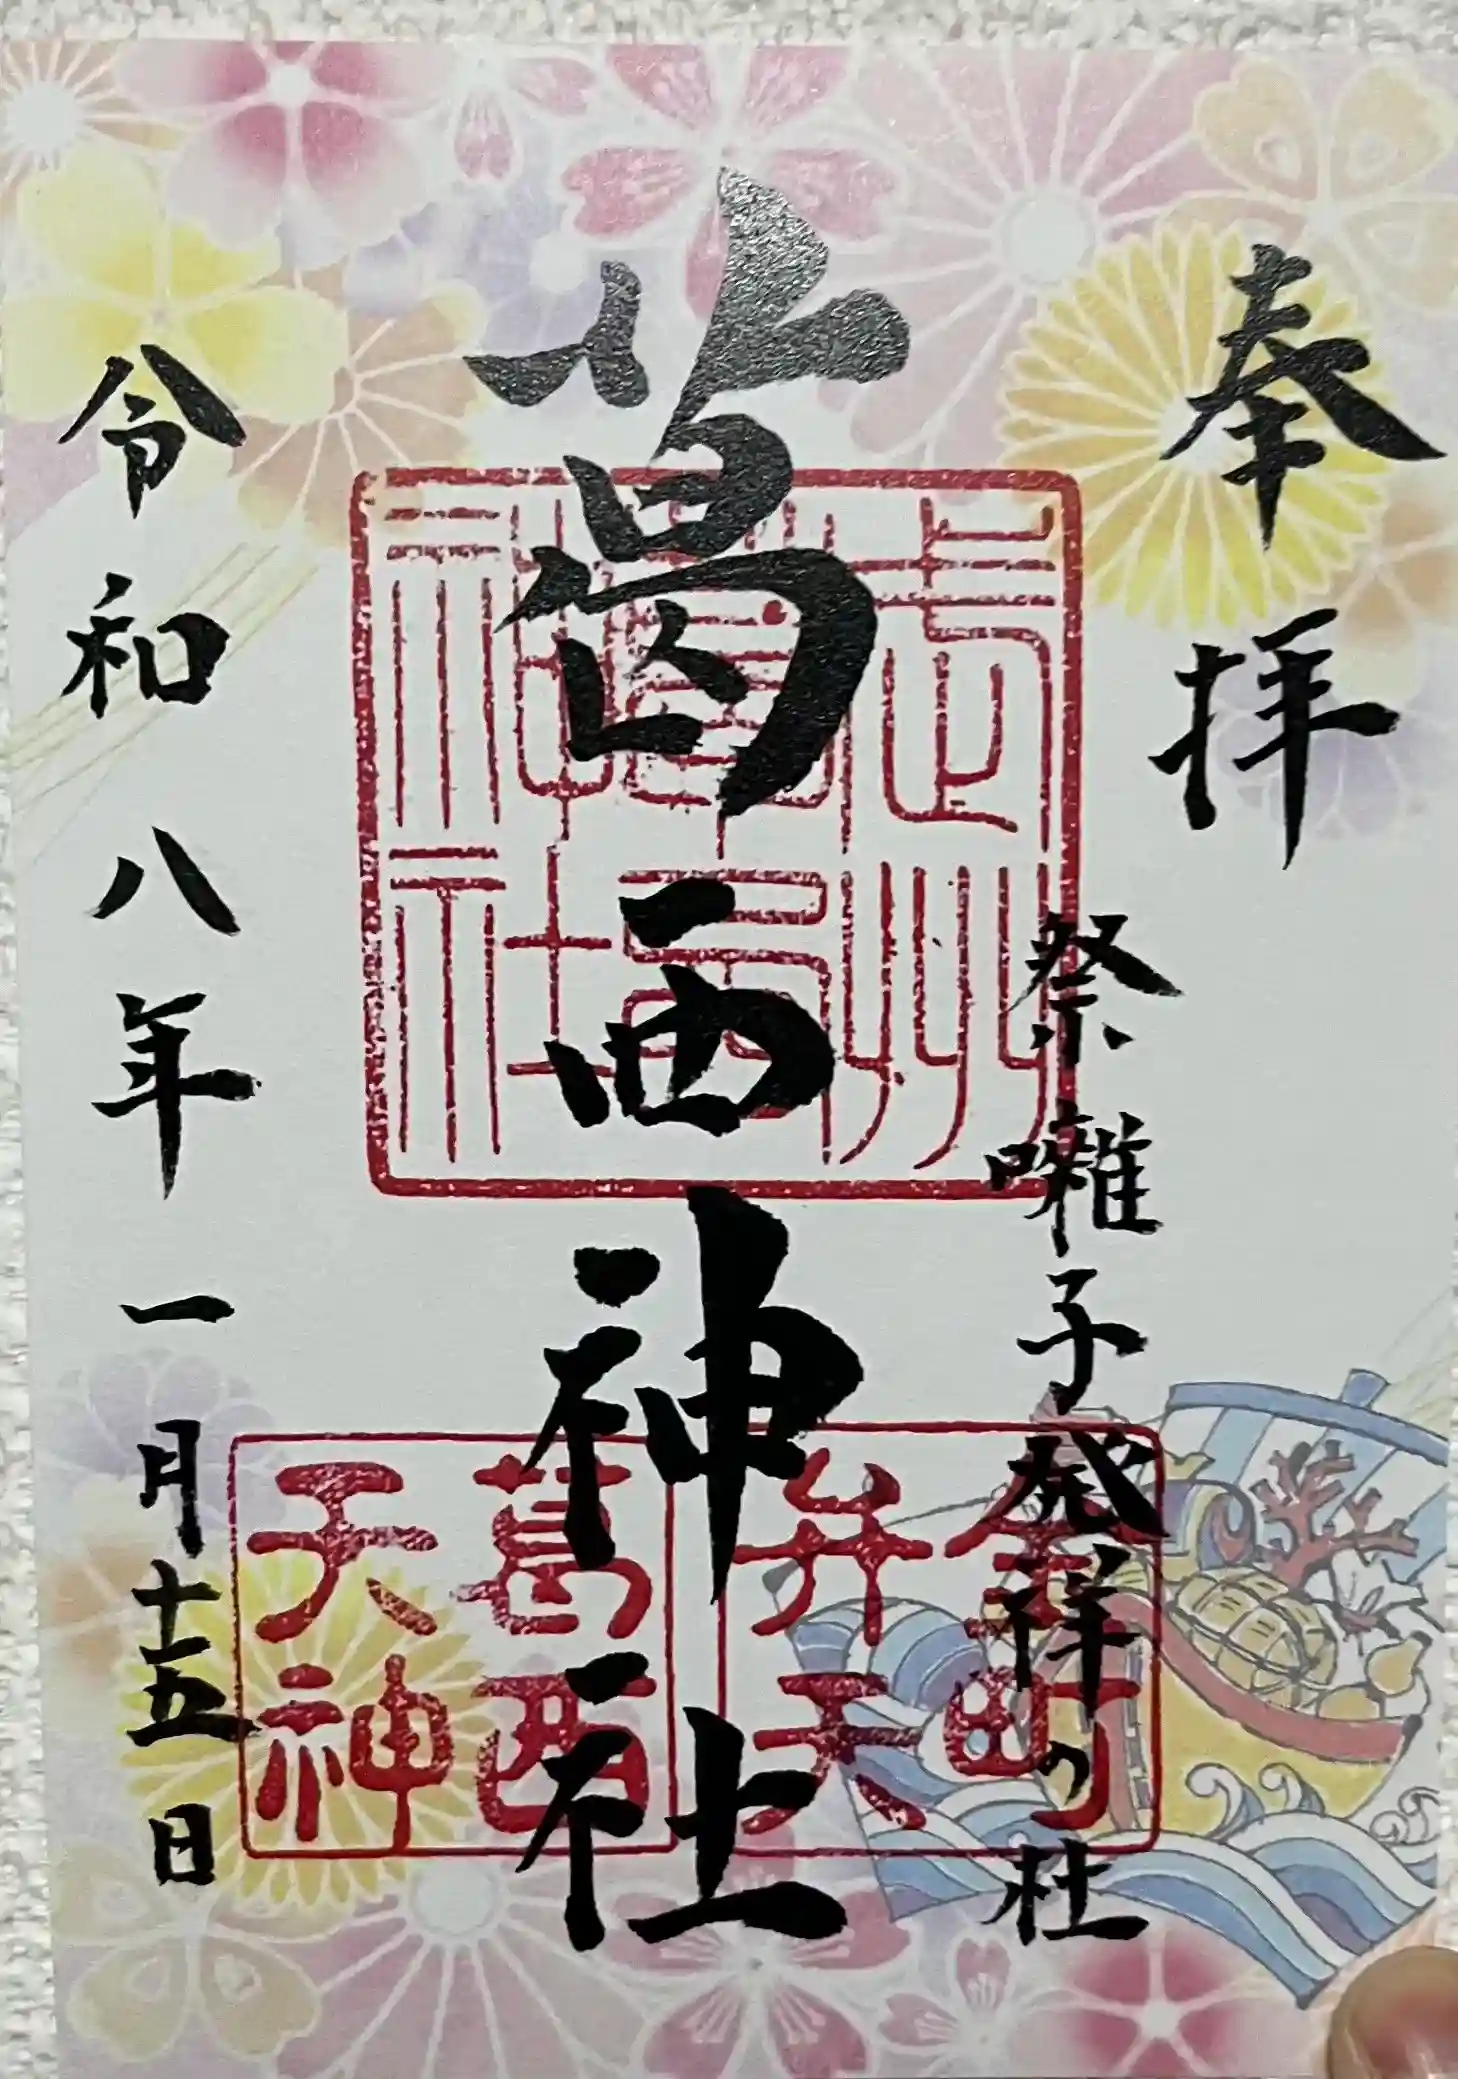 奉拝
祭囃子発祥の杜
葛西神社
武州
葛西
神社
金町
弁天
葛西
天神
令和八年一月十五日